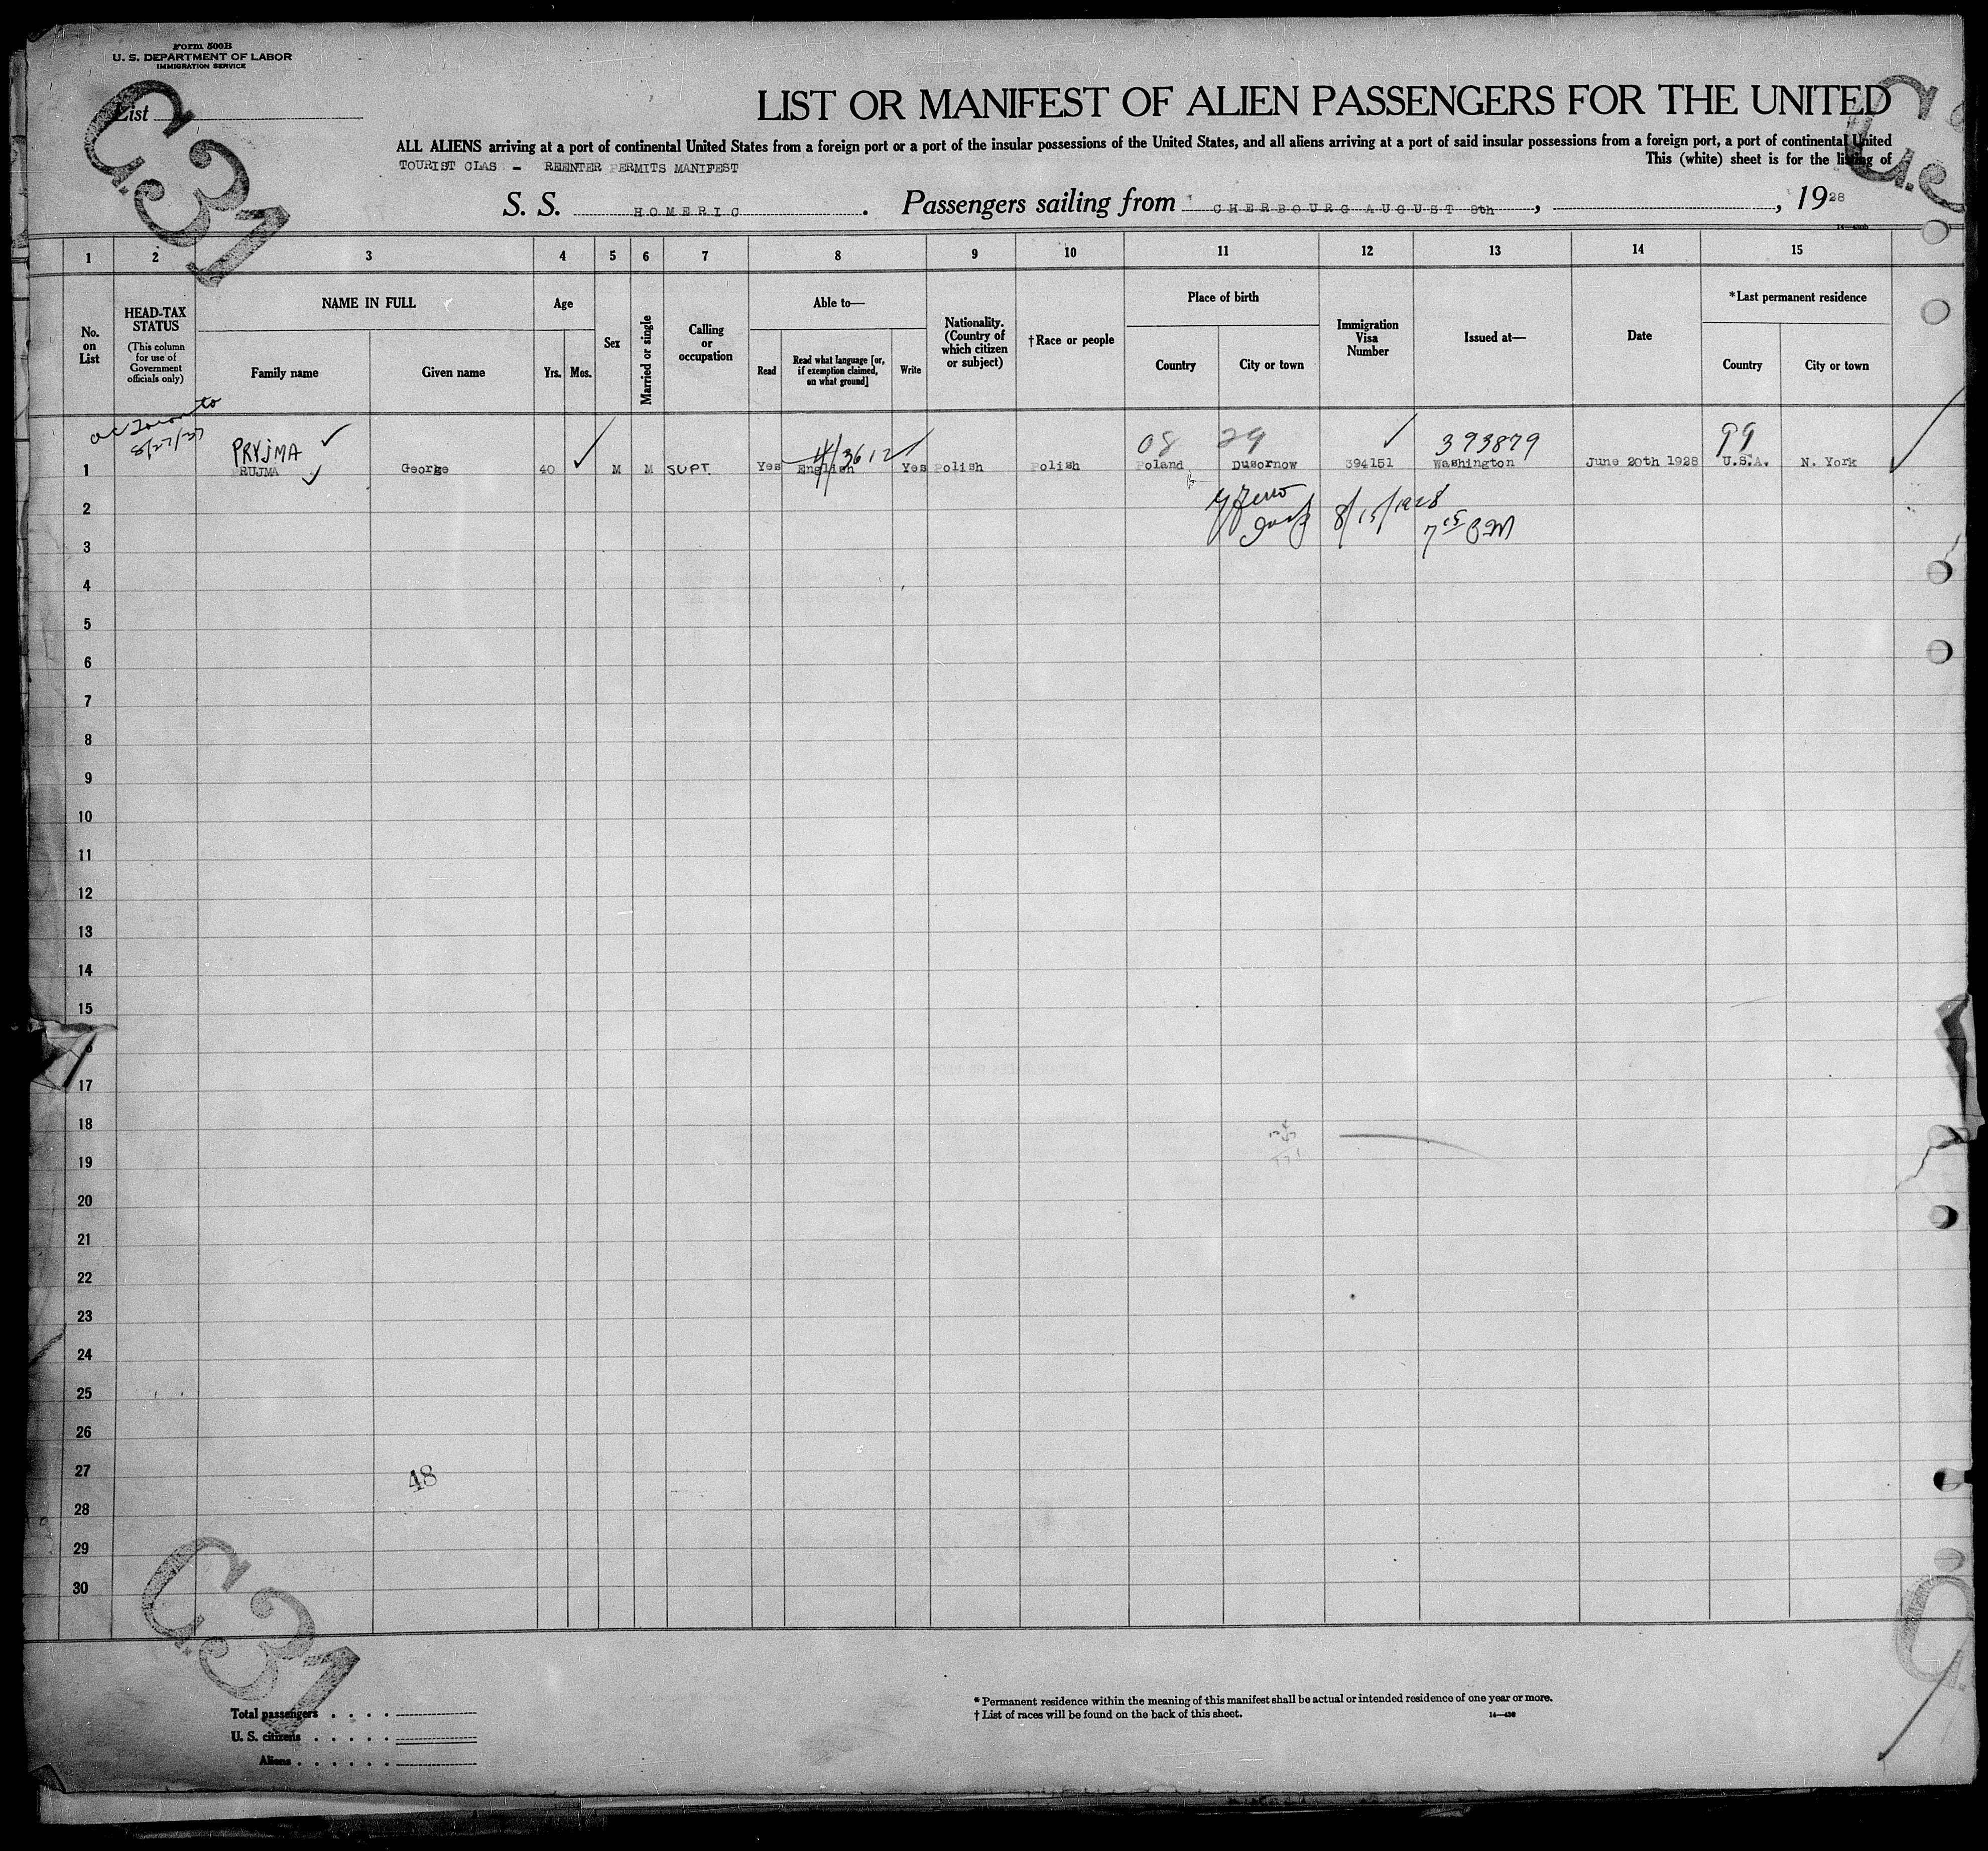 Form 500B
U. S. DEPARTMENT OF LABOR
IMMIGRATION SERVICE
List
G.31
LIST OR MANIFEST OF ALIEN PASSENGERS FOR THE UNITED
ALL ALIENS arriving at a port of continental United States from a foreign port or a port of the insular possessions of the United States, and all aliens arriving at a port of said insular possessions from a foreign port, a port of continental United
TOURIST CLAS - REENTER PERMITS MANIFEST
This (white) sheet is for the listing of
S. S. HOMERIC. Passengers sailing from CHERBOURG AUGUST 8th, , 1928
1 2 3 4 5 6 7 8 9 10 11 12 13 14 15
No. on List
HEAD-TAX STATUS
(This column for use of Government officials only)
NAME IN FULL
Family name
Given name
Age
Yrs.
Mos.
Sex
Married or single
Calling or occupation
Able to—
Read
Read what language [or, if exemption claimed, on what ground]
Write
Nationality. (Country of which citizen or subject)
†Race or people
Place of birth
Country
City or town
Immigration Visa Number
Issued at—
Date
*Last permanent residence
Country
City or town
8/27/37
PRYJMA 08 29 393879 99
1 PRUJMA George 40 M M SUPT. Yes English Yes Polish Polish Poland Dusornow 394151 Washington June 20th 1928 U.S.A. N. York
2 8/15/1928
3
4
5
6
7
8
9
10
11
12
13
14
15
17
18
19
20
21
22
23
24
25
26
27 48
28
29
30
G.31
Total passengers
U. S. citizens
Aliens
* Permanent residence within the meaning of this manifest shall be actual or intended residence of one year or more.
† List of races will be found on the back of this sheet.